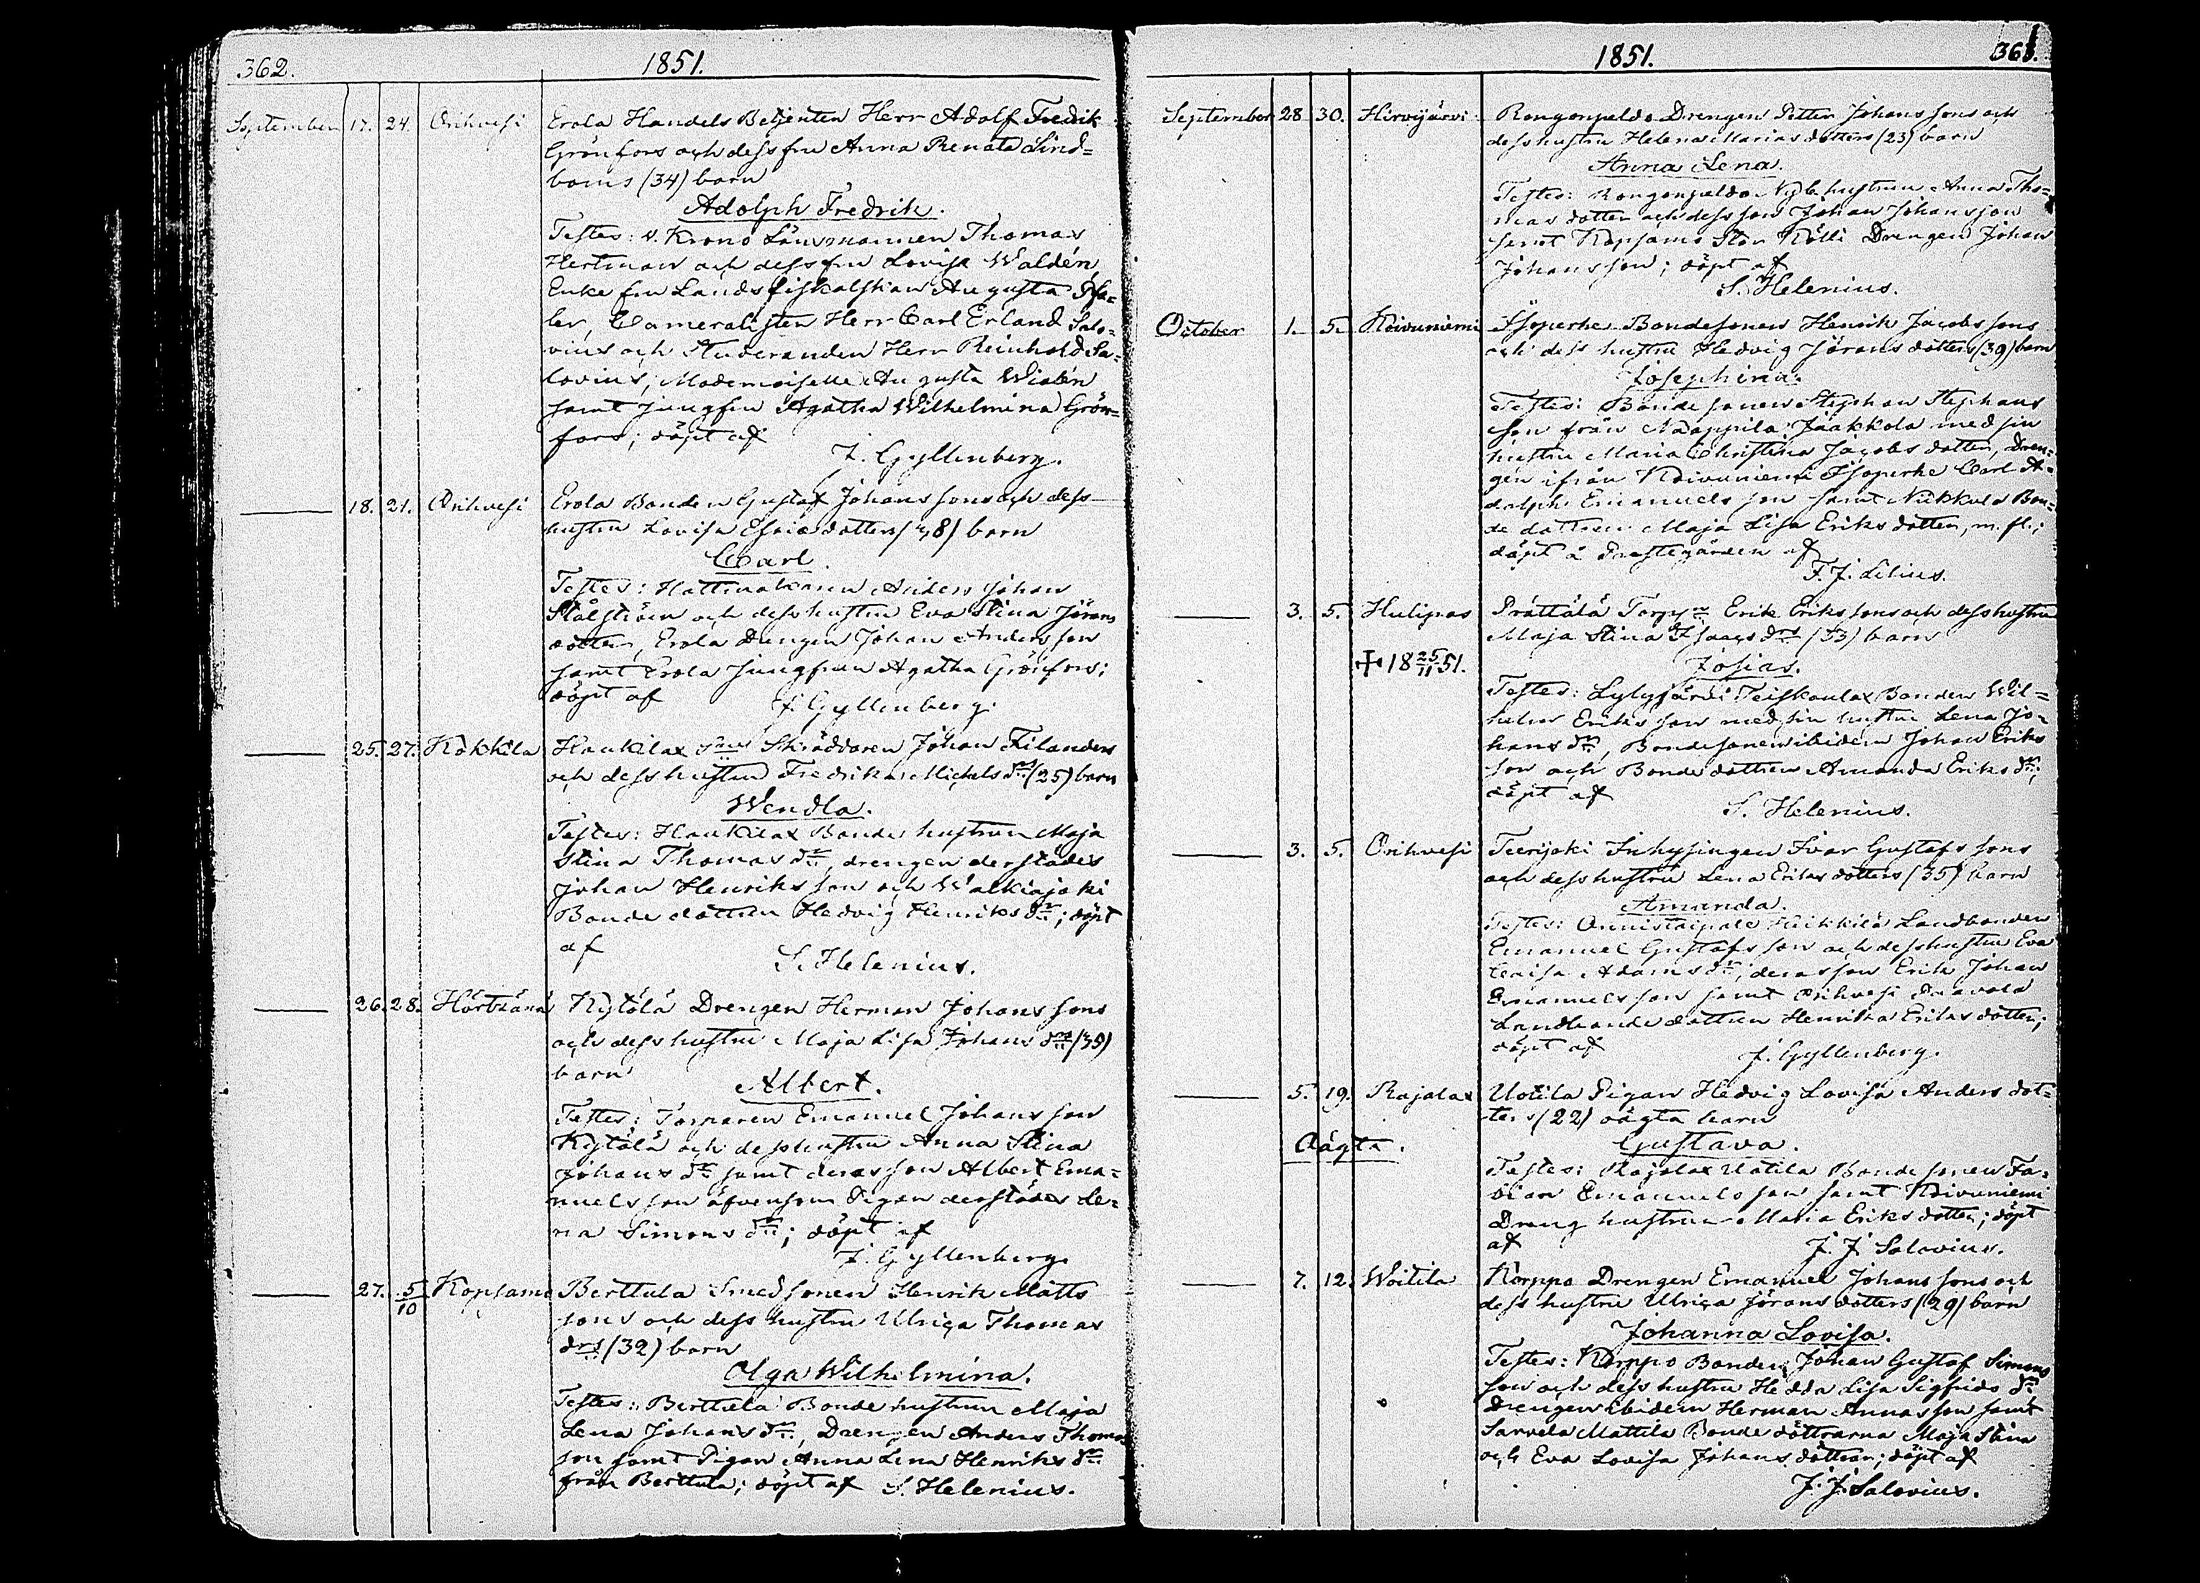 362.
1851.
September 17. 24. Orihvesi Erola Handels Betjenten Herr Adolf Fredrik
Grönfors och dess fru Anna Renata Lind=
boms (34) barn
Adolph Fredrik.
Testes: v. Krono Länsmannen Thomas
Hertman och dess fru Lovisa Waldén
Enke fru Landsfiskalskan Augusta
ler, Cameralisten Herr Carl Erland Salo=
vius och Studeranden Herr Reinhold Sa=
lovius, Mademoiselle Augusta
samt jungfru Agatha Wilhelmina Grön=
fors; döpt af
F. Gyllenberg.
18. 21. Orihvesi Erola Bonden Gustaf Johans sons och dess
hustru Lovisa Esaiæ dotters barn
Carl.
Testes: Anders Johan
Stålström och dess hustru Eva Stina Jörans
dotter, Erola Drengen Johan Anders son
samt Erola Jungfrun Agatha Grönfors;
döpt af
F. Gyllenberg.
25. 27. Kokkila Haukilax Skräddaren Johan Filanders
och dess hustru Fredrika Michels drs (25) barn
Wendla.
Testes: Haukilax Bonde hustrun Maja
Stina Thomas dr, drengen derstädes
Johan Henriks son och Walkiajoki
Bonde dottren Hedvig Henriks dr; döpt
af
S. Helenius.
26. 28. Hörtsänä Kytölä Drengen Herman Johans sons
och dess hustru Maja Lisa Johans drs (35)
barn
Albert.
Testes: Torparen Emanuel Johans son
Kytölä och dess hustru Anna Stina
Johans dr samt deras son Albert Ema=
nuels son äfvensom Pigan derstädes Le=
na Simons dr; döpt af
F. Gyllenberg.
27. 5/10 Kopsamo Berttula Smedsonen Henrik Matts
sons och dess hustru Ulrica Thomas
drs (32) barn
Olga Wilhelmina.
Testes: Berttula Bonde hustrun Maja
Lena Johans dr, Drengen Anders Thomas
son samt Pigan Anna Lena Henriks dr
från Berttula; döpt af S. Helenius.
1851.
363.
September 28 30. Hirvijärvi Rongonpeldo Drengen Petter Johans sons och
dess hustru Helena Marias dotters (23) barn
Anna Lena.
Testes: Rongonpeldo Nyb. hustrun Anna Tho=
mas dotter och dess son Johan Johans son
samt Kopsamo Stor Kölli Drengen Johan
Johans son; döpt af
S. Helenius.
October 1. 5. Koivuniemi Isoperhe Bondesonen Henrik Jacobs sons
och dess hustru Hedvig Jörans dotters (39) barn
Josephina.
Testes: Bondesonen Stephan Stephans
son från Naappila Jaakkola med sin
hustru Maria Christina Jacobs dotter, Dren=
gen ifrån Koivuniemi Isoperhe Carl A=
dolph Emanuels son samt Nikkola Bon=
de dottren Maja Lisa Eriks dotter, m. fl.;
döpt å Prestegården af
F. J. Lilius.
3. 5. Hulipas Prättälä Torpn Erik Eriks sons och dess hustru
Maja Stina Isaacs drs (33) barn
✝ 18 25/11 51.
Josias.
Testes: Lylyjärvi Teiskonlax Bonden Wil=
helm Eriks son med sin hustru Lena Jo=
hans dr, Bondesonen ibidem Johan Eriks
son och Bonde dottren Amanda Eriks dr;
döpt af
S. Helenius.
3. 5. Orihvesi Teerijoki Inhysingen Ivar Gustafs sons
och dess hustru Lena Eriks dotters (35) barn
Amanda.
Testes: Onnistaipale Heikkilä Landbonden
Emanuel Gustafs son och dess hustru Eva
Caisa Adams dr, deras son Erik Johan
Emanuels son samt Orihvesi
Landbonde dottren Henrika Eriks dotter;
döpt af
F. Gyllenberg.
5. 19. Rajalax Uotila Pigan Hedvig Lovisa Anders dot=
ters (22) oägta barn
Oägta.
Gustava.
Testes: Rajalax Uotila Bonde sonen Fa=
bian Emanuels son samt Koivuniemi
Dreng hustrun Maria Eriks dotter; döpt
af
J. J. Salovius.
7. 12. Woitila Korppo Drengen Emanuel Johans sons och
dess hustru Ulrica Jörans dotters (29) barn
Johanna Lovisa.
Testes: Korppo Bonden Johan Gustaf Simons
son och dess hustru Hedda Lisa Sigfrids dr
Drengen ibidem Herman Annas son samt
Sarvela Mattila Bonde döttrarna Maja Stina
och Eva Lovisa Johans döttrar; döpt af
J. J. Salovius.